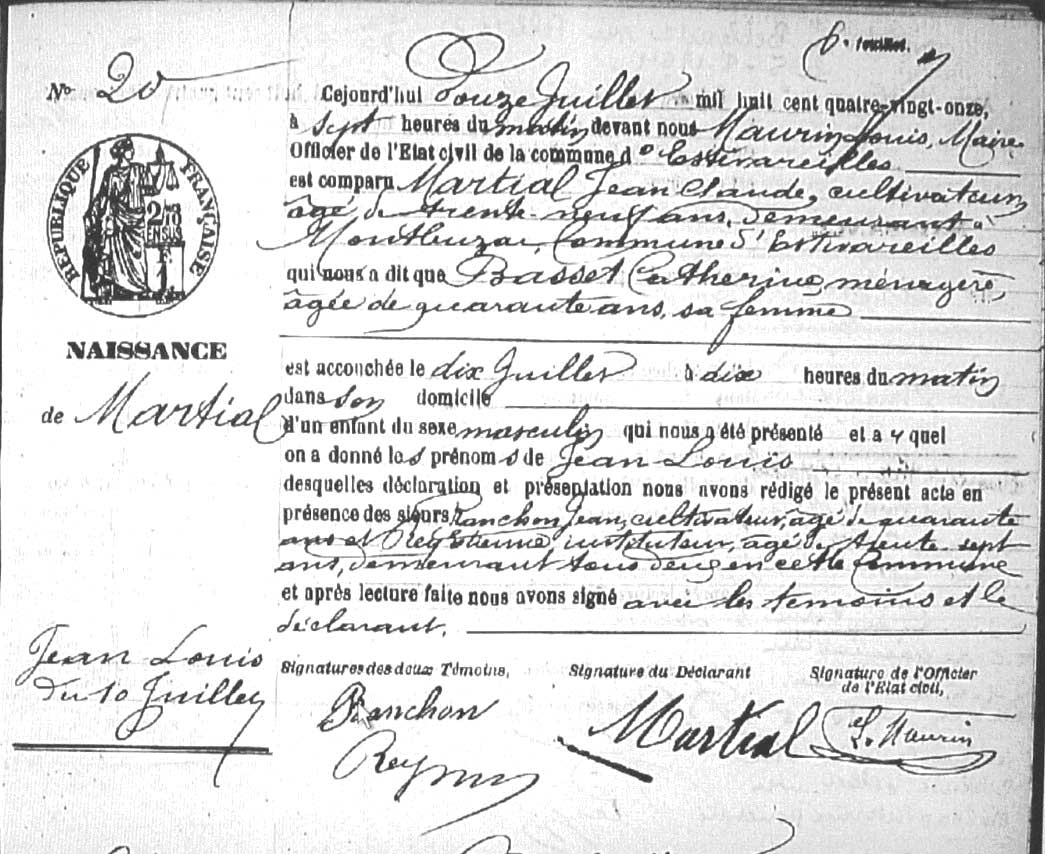 6e feuillet.
No 20
RÉPUBLIQUE FRANÇAISE
NAISSANCE
de Martial
Jean Louis
du 10 Juillet
Cejourd'hui Douze Juillet mil huit cent quatre-vingt-onze,
à sept heures du matin devant nous Maurin Louis, Maire
Officier de l'Etat civil de la commune d' Estivareilles
est comparu Martial Jean Claude, cultivateur
âgé de trente-neuf ans, demeurant à
Montbuzac, Commune d'Estivareilles
qui nous a dit que Basset Catherine, ménagère,
âgée de quarante ans, sa femme
est accouchée le dix Juillet à dix heures du matin
dans son domicile
d'un enfant du sexe masculin qui nous a été présenté et a quel
on a donné les prénoms de Jean Louis
desquelles déclaration et présentation nous avons rédigé le présent acte en
présence des sieurs Ranchon Jean, cultivateur, âgé de quarante
ans et instituteur, âgé de trente sept
ans, demeurant tous deux en cette Commune
et après lecture faite nous avons signé avec les témoins et le
déclarant.
Signatures des deux Témoins, Signature du Déclarant Signature de l'Officier
de l'Etat civil,
Ranchon Martial L. Maurin